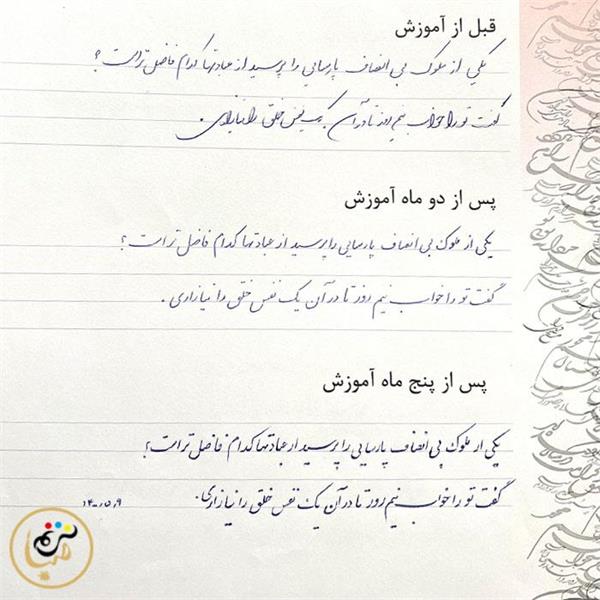 قبل از آموزش
یکی از ملوک بی انصاف پارسایی را پرسید از عبادتها کدام فاضل تر است؟
گفت تو را خواب نیم روز تا در آن یک نفس خلق را نیازاری.
پس از دو ماه آموزش
یکی از ملوک بی انصاف پارسایی را پرسید از عبادتها کدام فاضل تر است؟
گفت تو را خواب نیم روز تا در آن یک نفس خلق را نیازاری.
پس از پنج ماه آموزش
یکی از ملوک بی انصاف پارسایی را پرسید از عبادتها کدام فاضل تر است؟
گفت تو را خواب نیم روز تا در آن یک نفس خلق را نیازاری.